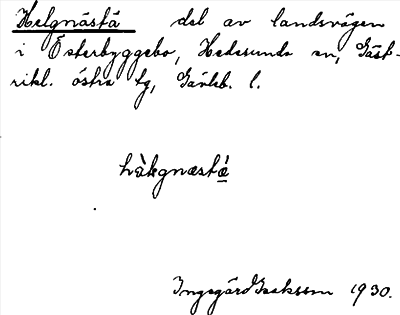 Helgnästä del av landsvägen
i Österbyggebo, Hedesunda sn, Gäst-
rikl. östra tg, Gävleb. l.
hàkgnæstǽ
Ingegärd Isaksson 1930.